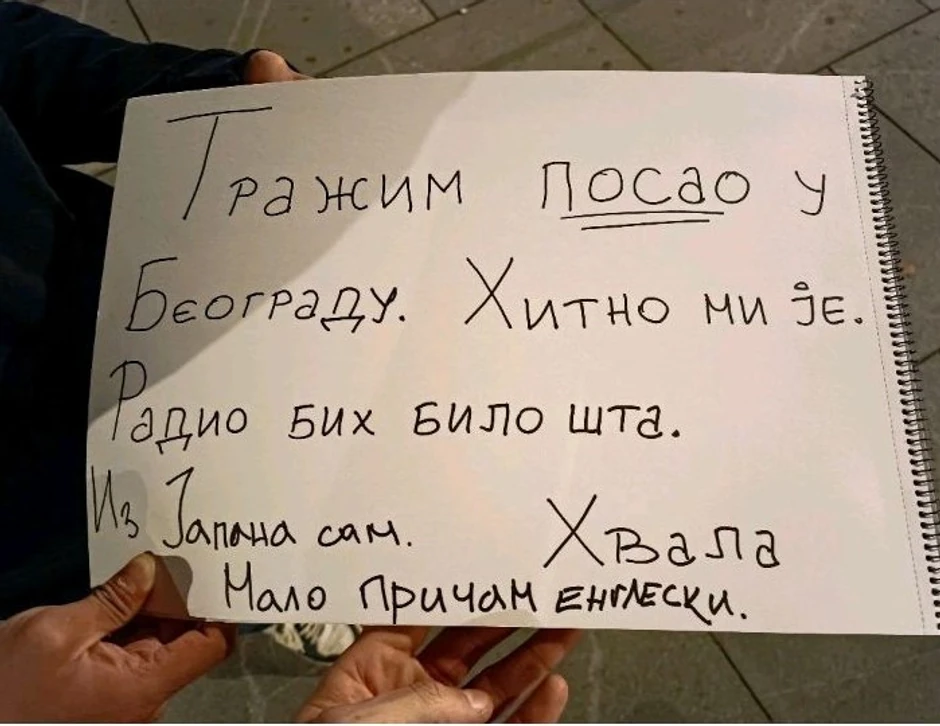 Тражим посао у
Београду. Хитно ми је.
Радио бих било шта.
Из Јапана сам. Хвала
Мало причам енглески.